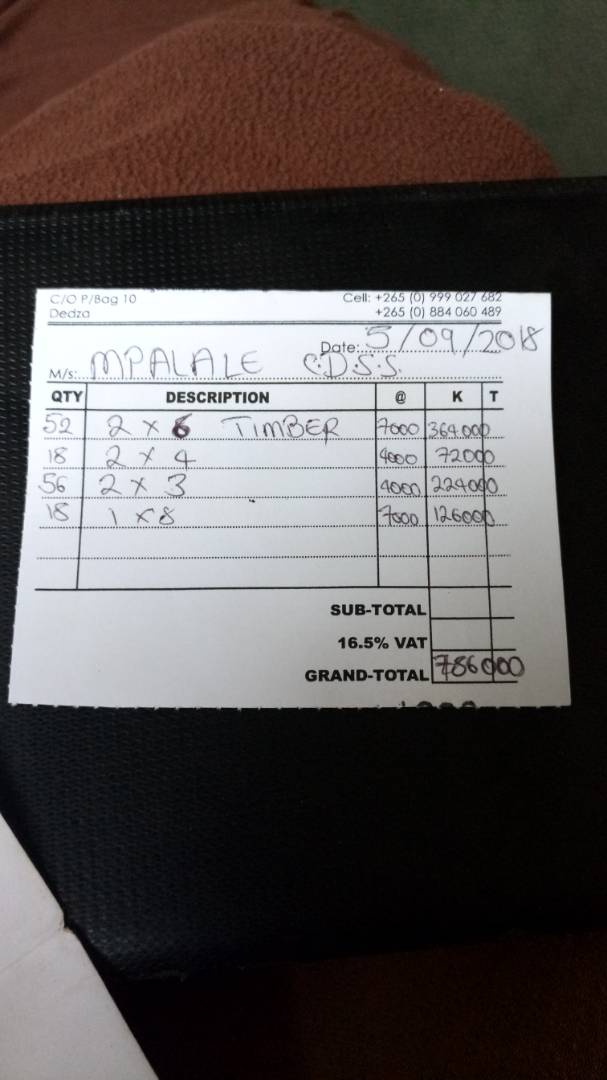 C/O P/Bag 10 Cell: +265 (0) 999 027 682
Dedza +265 (0) 884 060 489
Date: 5/09/2018
M/s: MPALALE C.D.S.S.
QTY DESCRIPTION @ K T
52 2 x 6 TIMBER 7000 364000
18 2 x 4 4000 72000
56 2 x 3 4000 224000
18 1 x 8 7000 126000
SUB-TOTAL
16.5% VAT
GRAND-TOTAL 786000